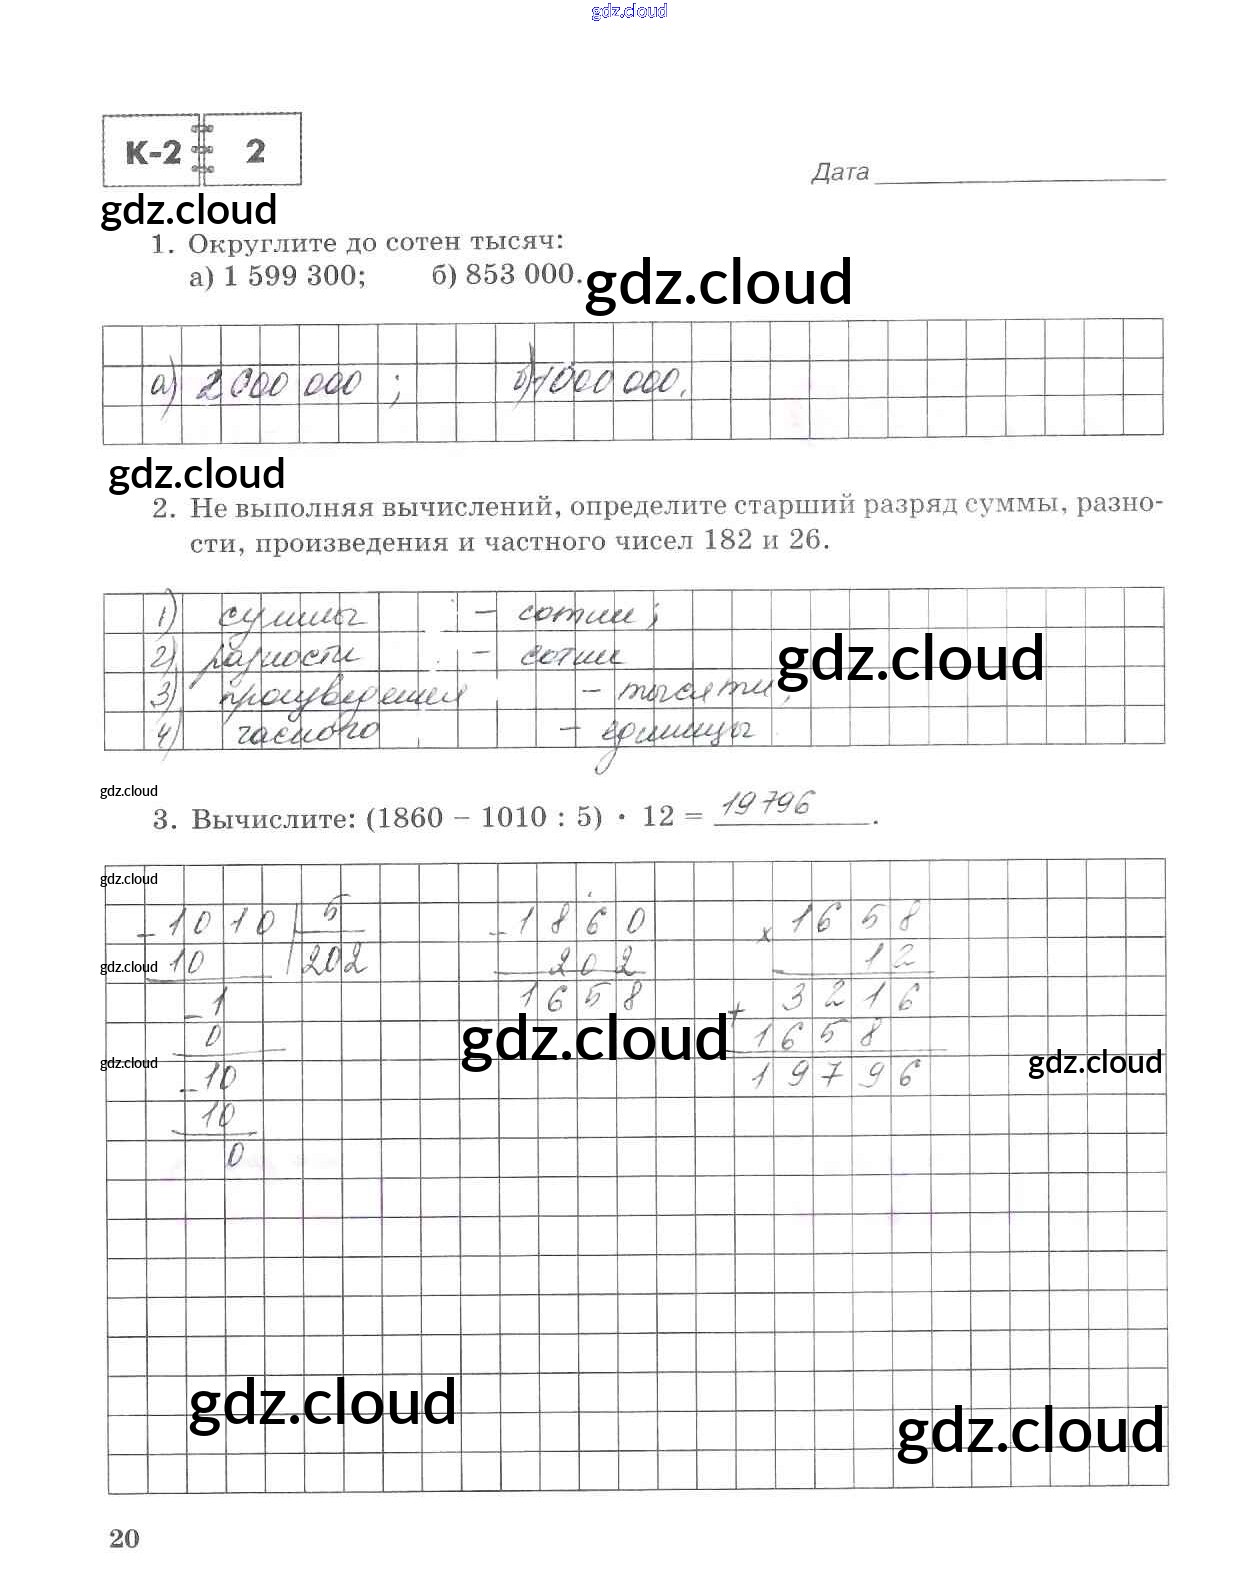 gdz.cloud
К-2 2
Дата
gdz.cloud
1. Округлите до сотен тысяч:
а) 1 599 300; б) 853 000.
gdz.cloud
а) 2 000 000 ; б) 1000 000.
gdz.cloud
2. Не выполняя вычислений, определите старший разряд суммы, разно-
сти, произведения и частного чисел 182 и 26.
1) суммы - сотни;
2) разности - сотни
gdz.cloud
3) произведения - тысячи;
4) часного - единицы
gdz.cloud
3. Вычислите: (1860 – 1010 : 5) · 12 = 19796.
gdz.cloud
- 1010 5 - 1860 x 1658
gdz.cloud
10 202 202 12
- 1 1658 + 3216
0 1658
gdz.cloud
gdz.cloud
gdz.cloud
- 10 19796
10
0
gdz.cloud
gdz.cloud
20